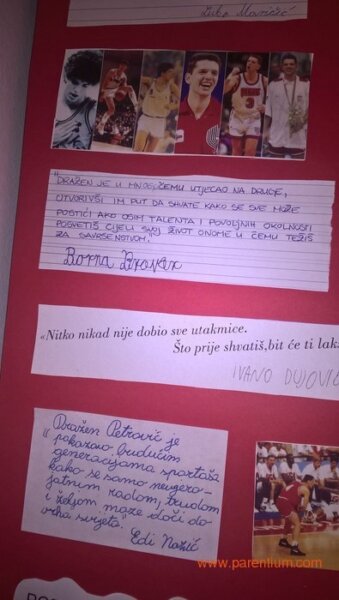 Ljubo Maričić
3
"DRAŽEN JE U MNOGOČEMU UTJECAO NA DRUGE,
OTVORIVŠI IM PUT DA SHVATE KAKO SE SVE MOŽE
POSTIĆI AKO OSIM TALENTA I POVOLJNIH OKOLNOSTI
POSVETIŠ CIJELI SVOJ ŽIVOT ONOME U ČEMU TEŽIŠ
ZA SAVRŠENSTVOM."
Borna
«Nitko nikad nije dobio sve utakmice.
Što prije shvatiš,bit će ti lak
IVANO DUJOVIĆ
Dražen Petrović je
" pokazao budućim
generacijama sportaša
kako se samo nevjero-
jatnim radom, trudom
i željom može doći do
vrha svijeta."
Edi Nazić
www.parentium.com